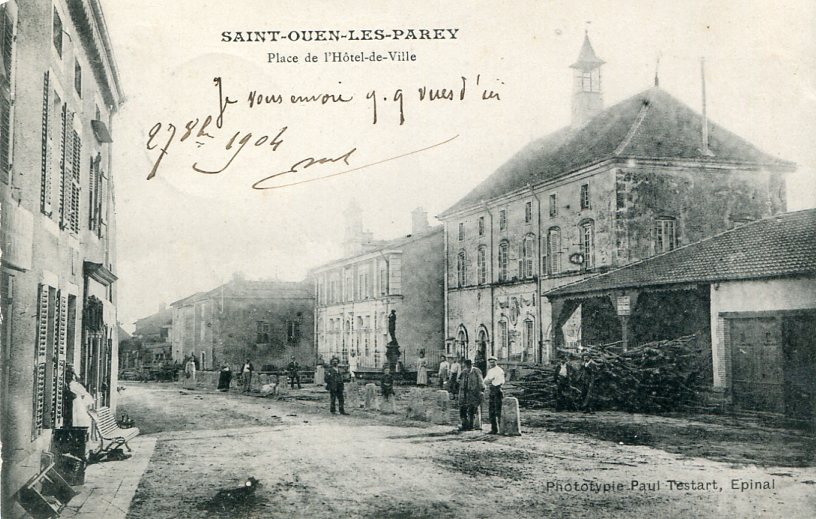 SAINT-OUEN-LES-PAREY
Place de l'Hôtel-de-Ville
Je vous envoie q. q vues d'ici
27 8bre 1904
Phototypie Paul Testart, Epinal